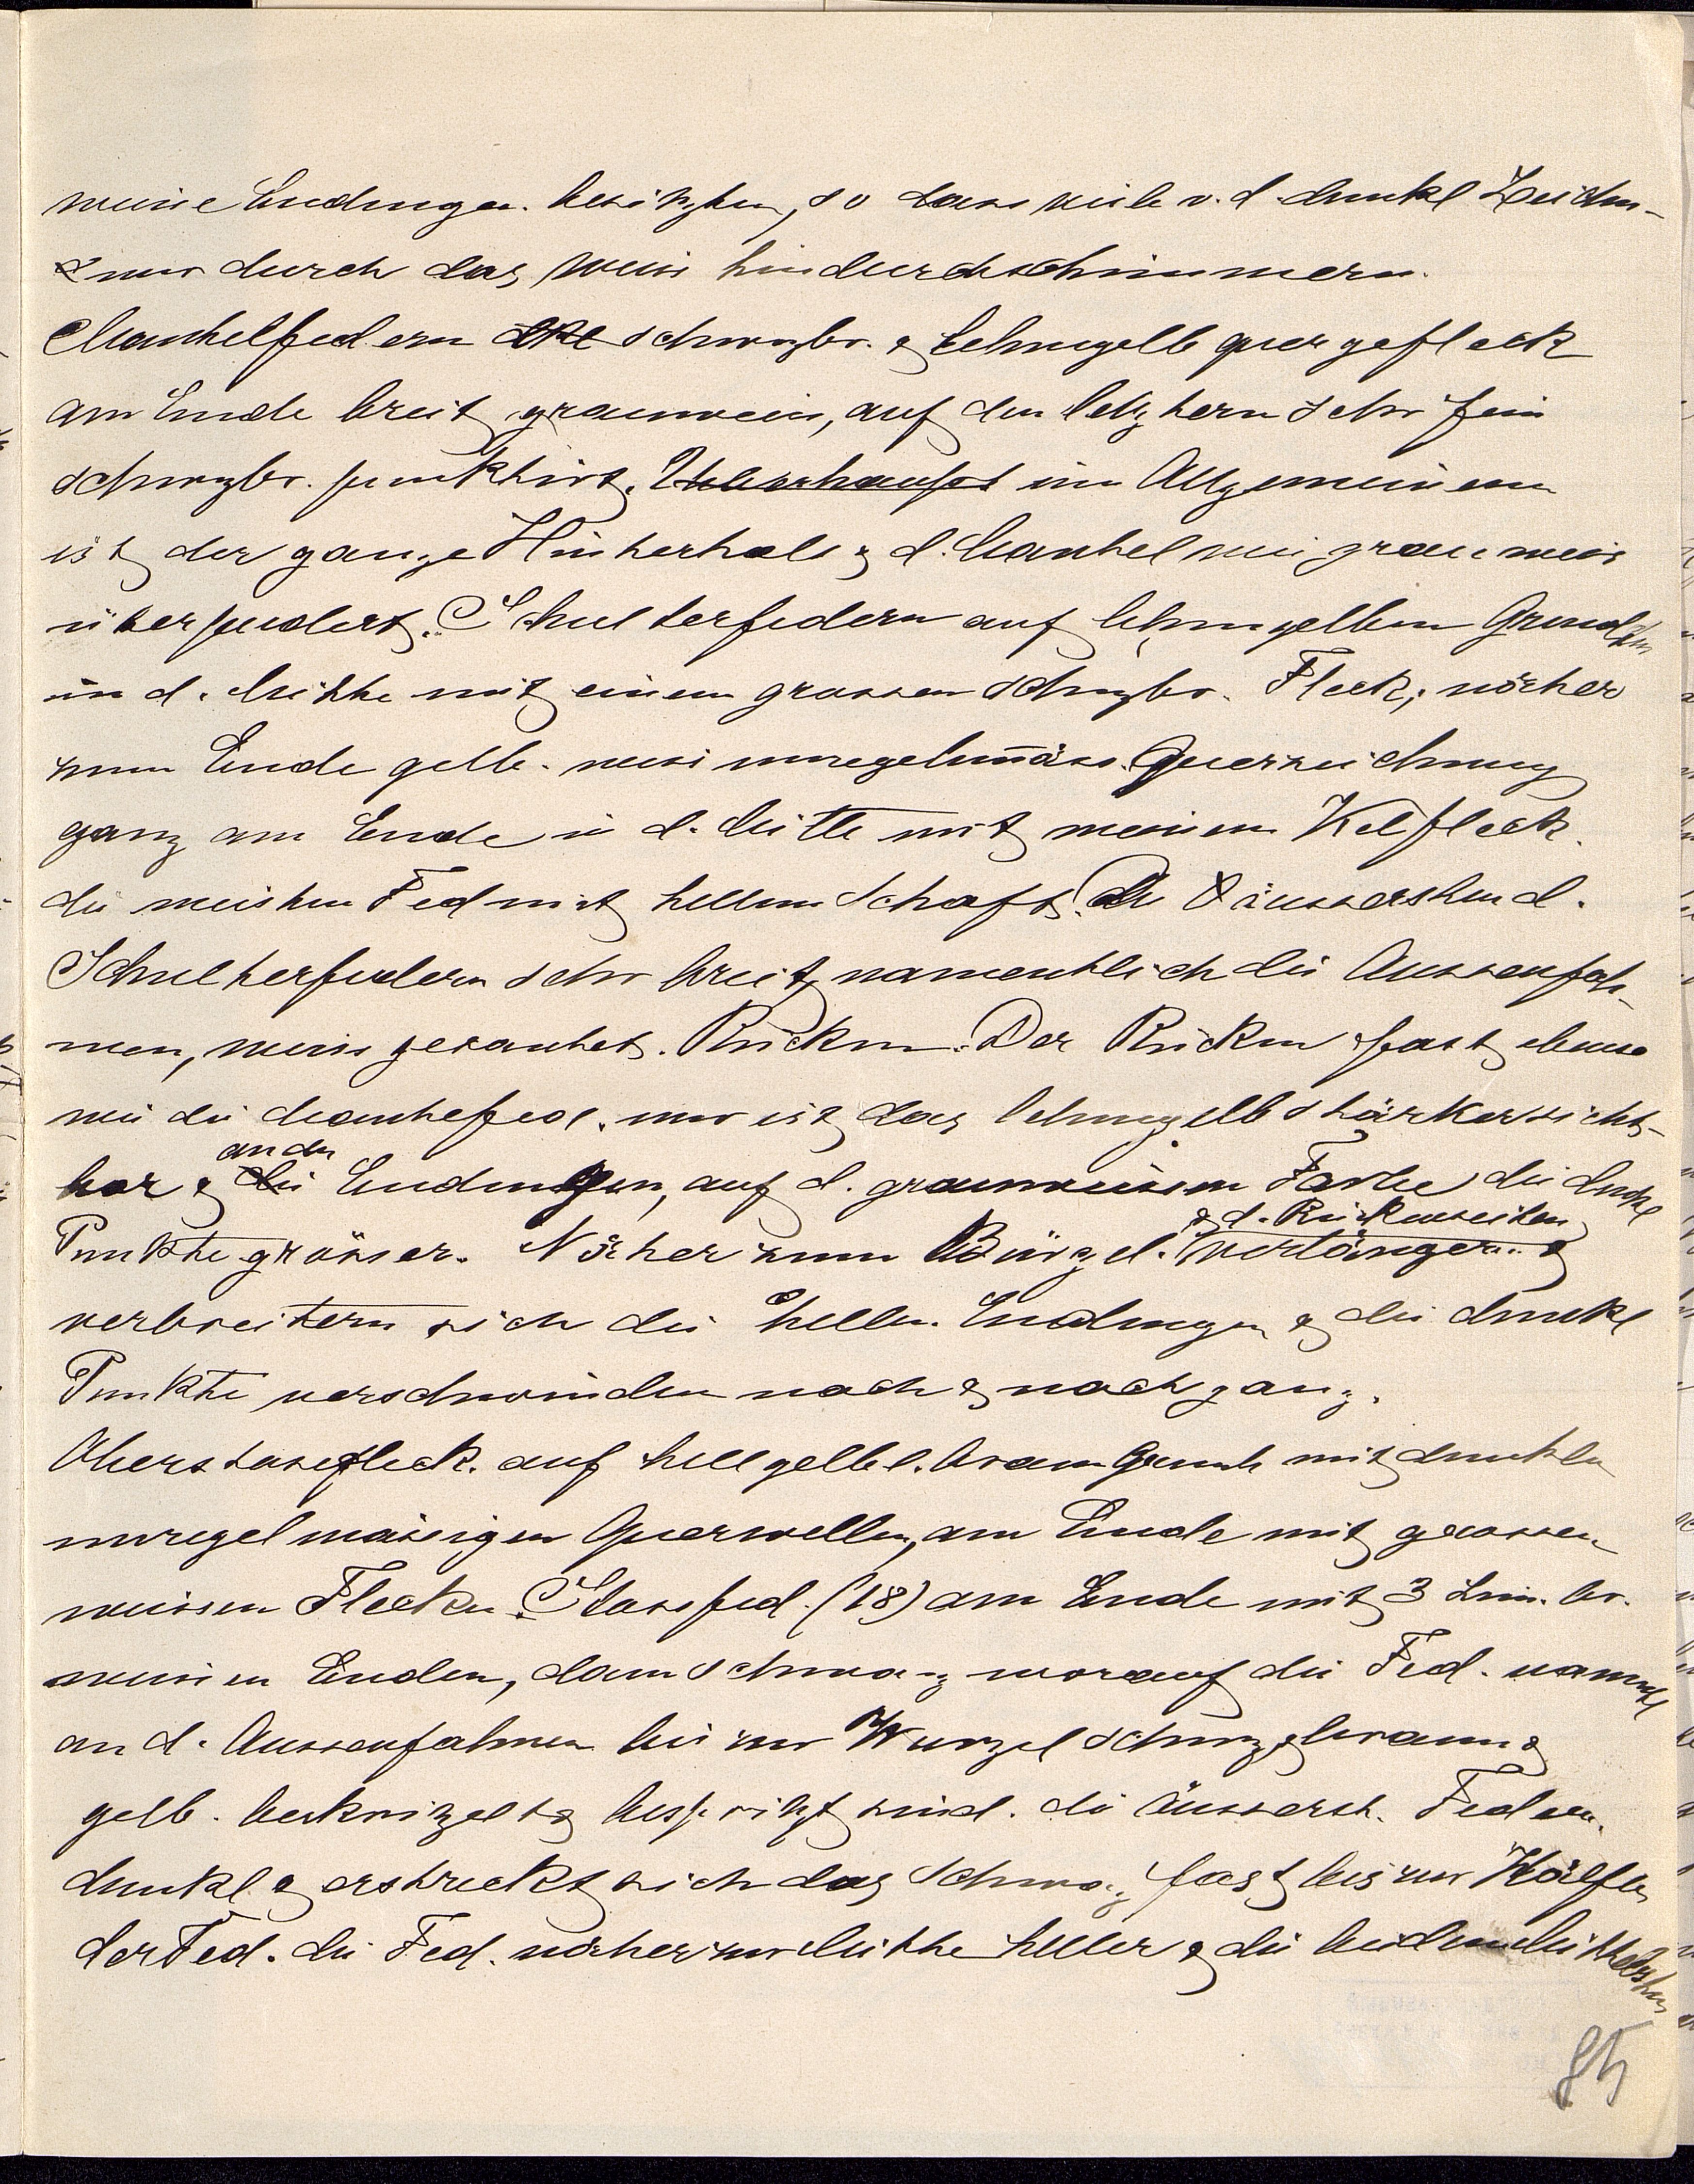 weisse Endungen besitzten, so dass viele v. d. dunkl Zeichn-
nur durch das weiss hindurchschimmern.
Mantelfedern schwrzbr. & lehmgelb quergefleckt
am Ende breit grauweiss, auf den letztern sehr fein
schwrzbr. punktirt. Ueberhaupt im Allgemeinen
ist der ganze Hinterhals & d. Mantel wie grau weiss
überpudert. Schulterfedern auf lehmgelbem Grund
in d. Mitte mit einem grossen schwrzbr. Fleck, näher
zum Ende gelb. weiss unregelmäss. Querzeichnung
ganz am Ende in d. Mitte mit weissem Keilfleck.
die meisten Fed mit hellem Schaft. Die äussersten d.
Schulterfedern sehr breit, namentlich die Aussenfah-
nen, weiss gerandet. Rücken. Der Rücken fast ebenso
wie die Mantelfed. nur ist das lehmgelb stärker sicht-
an den
bar & die Endungen, auf d. grauweissem Farbe die dunkl
& d. Rückenseiten
Punkte grösser. Näher zum Bürzel verlängern &
verbreitern sich die hellen Endungen & die dunkl
Punkte verschwinden nach & nach ganz.
Oberstossfleck. auf hellgelbl. braun Grunde mit dunklen
unregelmässigen Querwellen, am Ende mit grossen
weissen Flecken. Stossfed. (18) am Ende mit 3 Lin. br.
weissen Enden, dann schwarz worauf die Fed. namentl
an d. Aussenfahnen bis zur Wurzel schwrzgbraun &
gelb. bekrizelt & bespritzt sind. die äusserst. Federn.
dunkl & erstreckt sich das Schwarz fast bis zur Hälfte
der Fed. die Fed. näher zur Mitte heller & die beiden Mittelsten
85